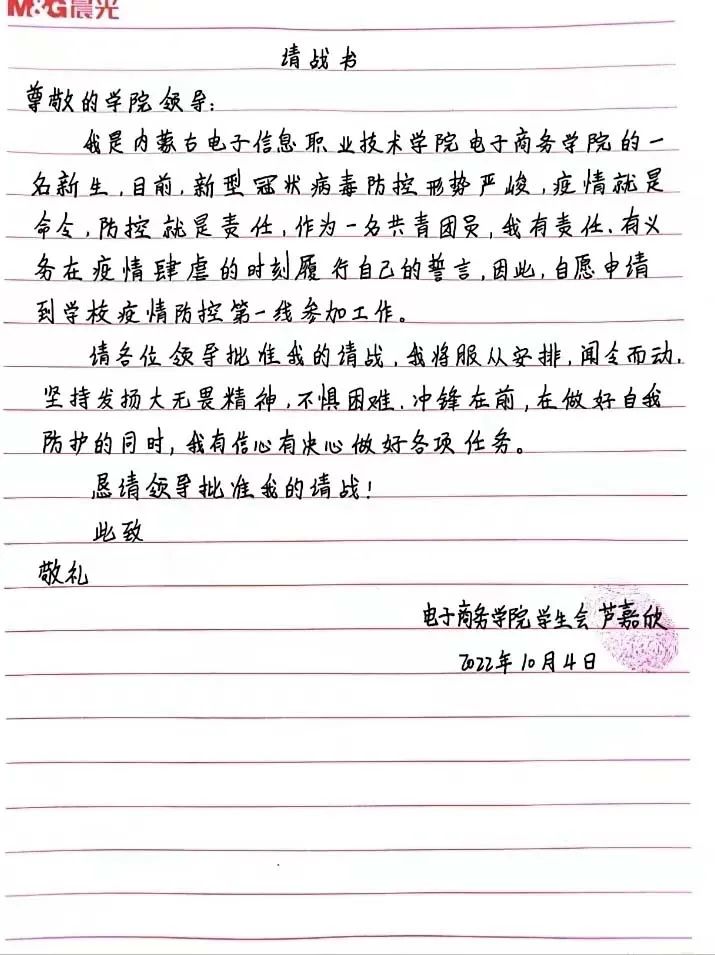 M&G晨光
请战书
尊敬的学院领导:
我是内蒙古电子信息职业技术学院电子商务学院的一
名新生,目前,新型冠状病毒防控形势严峻,疫情就是
命令,防控就是责任,作为一名共青团员,我有责任、有义
务在疫情肆虐的时刻履行自己的誓言,因此,自愿申请
到学校疫情防控第一线参加工作。
请各位领导批准我的请战,我将服从安排,闻令而动、
坚持发扬大无畏精神、不惧困难、冲锋在前,在做好自我
防护的同时,我有信心有决心做好各项任务。
恳请领导批准我的请战!
此致
敬礼
电子商务学院学生会 芦嘉欣
2022年10月4日